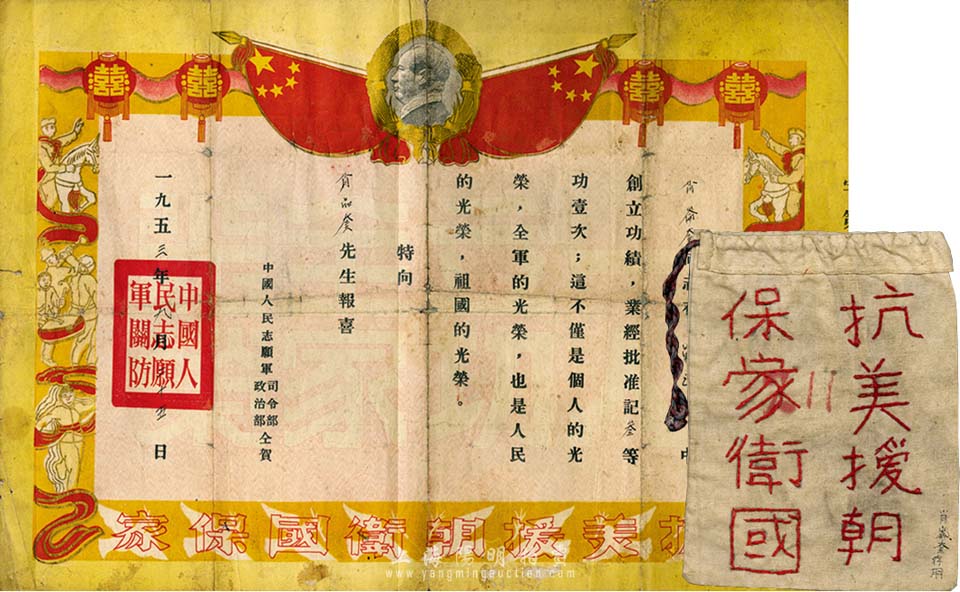 囍 囍 囍 囍
創立功績，業經批准記叁等
功壹次；這不僅是個人的光
榮，全軍的光榮，也是人民
的光榮，祖國的光榮。
特向
先生報喜
中國人民志願軍司令部政治部仝賀
一九五三年 月 日
中國人
民志願
軍關防
美援朝衛國保家
抗美援朝
保家衛國
www.yangmingauction.com